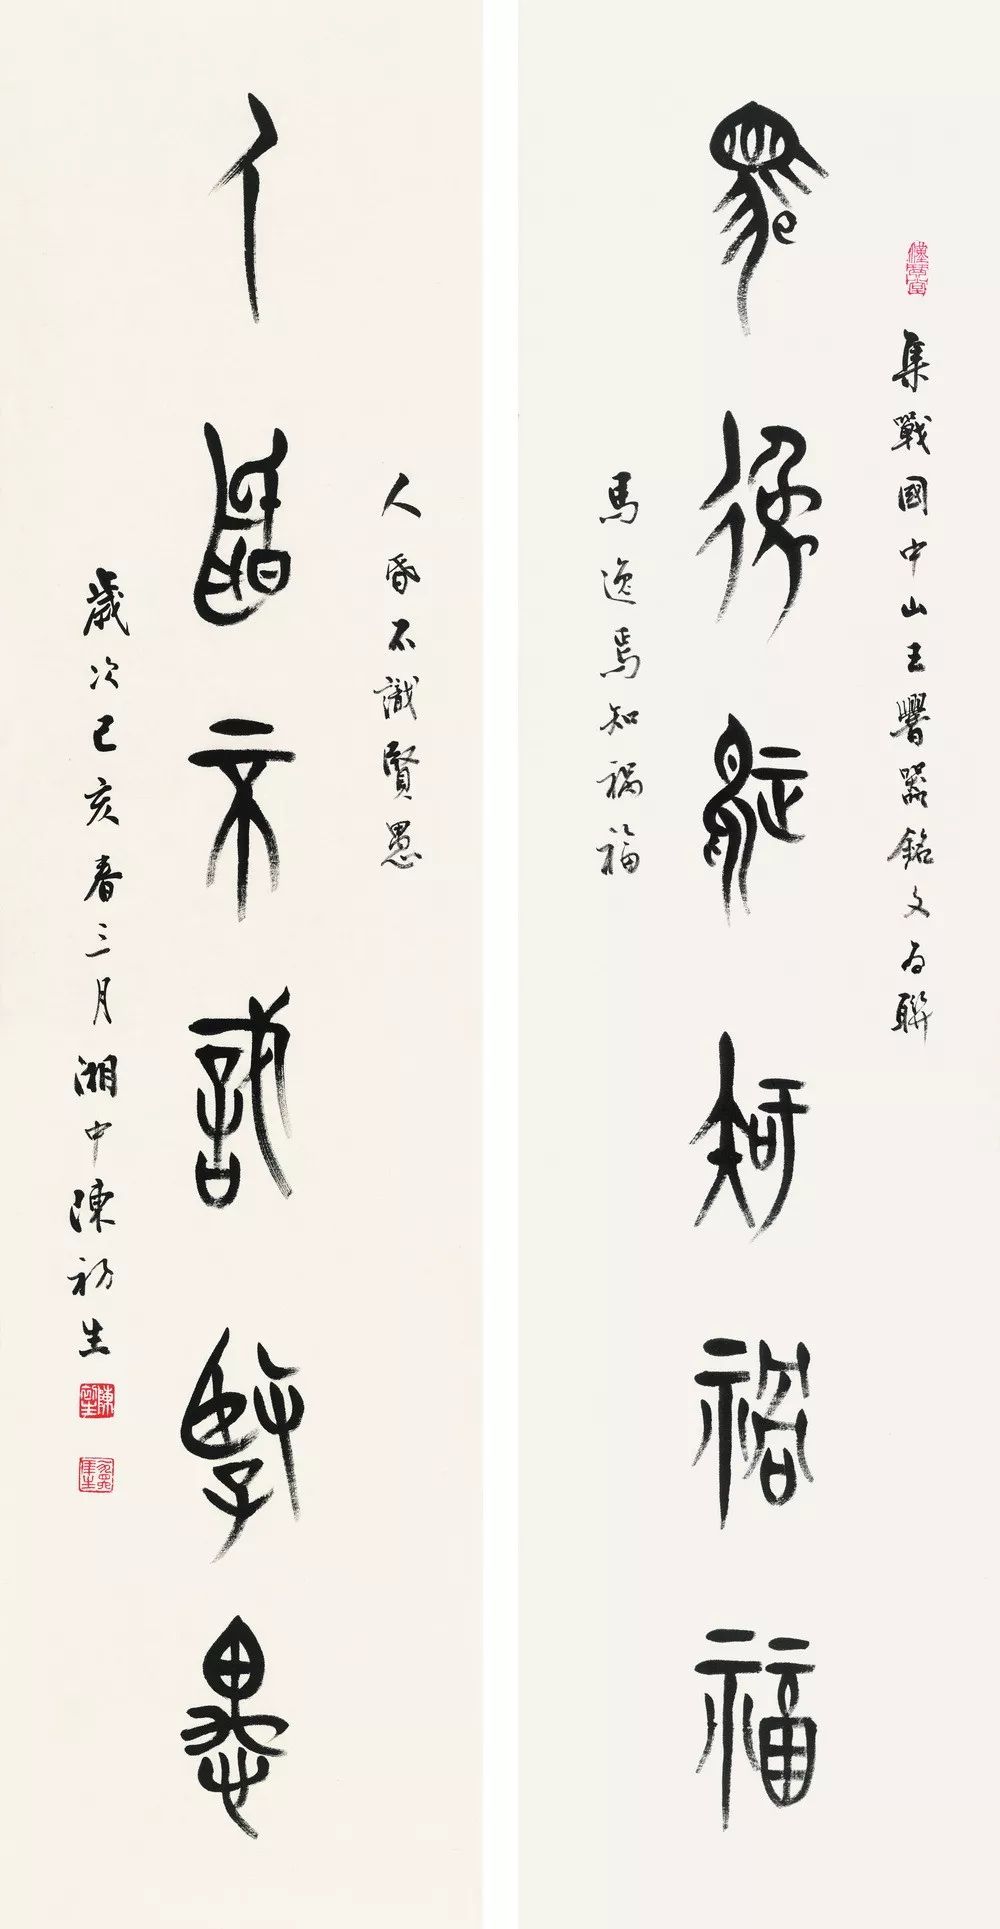 集戰國中山王𰯼器銘文為聯
馬逸焉知禍福
馬逸焉知禍福
人昏不識賢愚
人昏不識賢愚
歲次己亥春三月湘中陳初生
陳初生